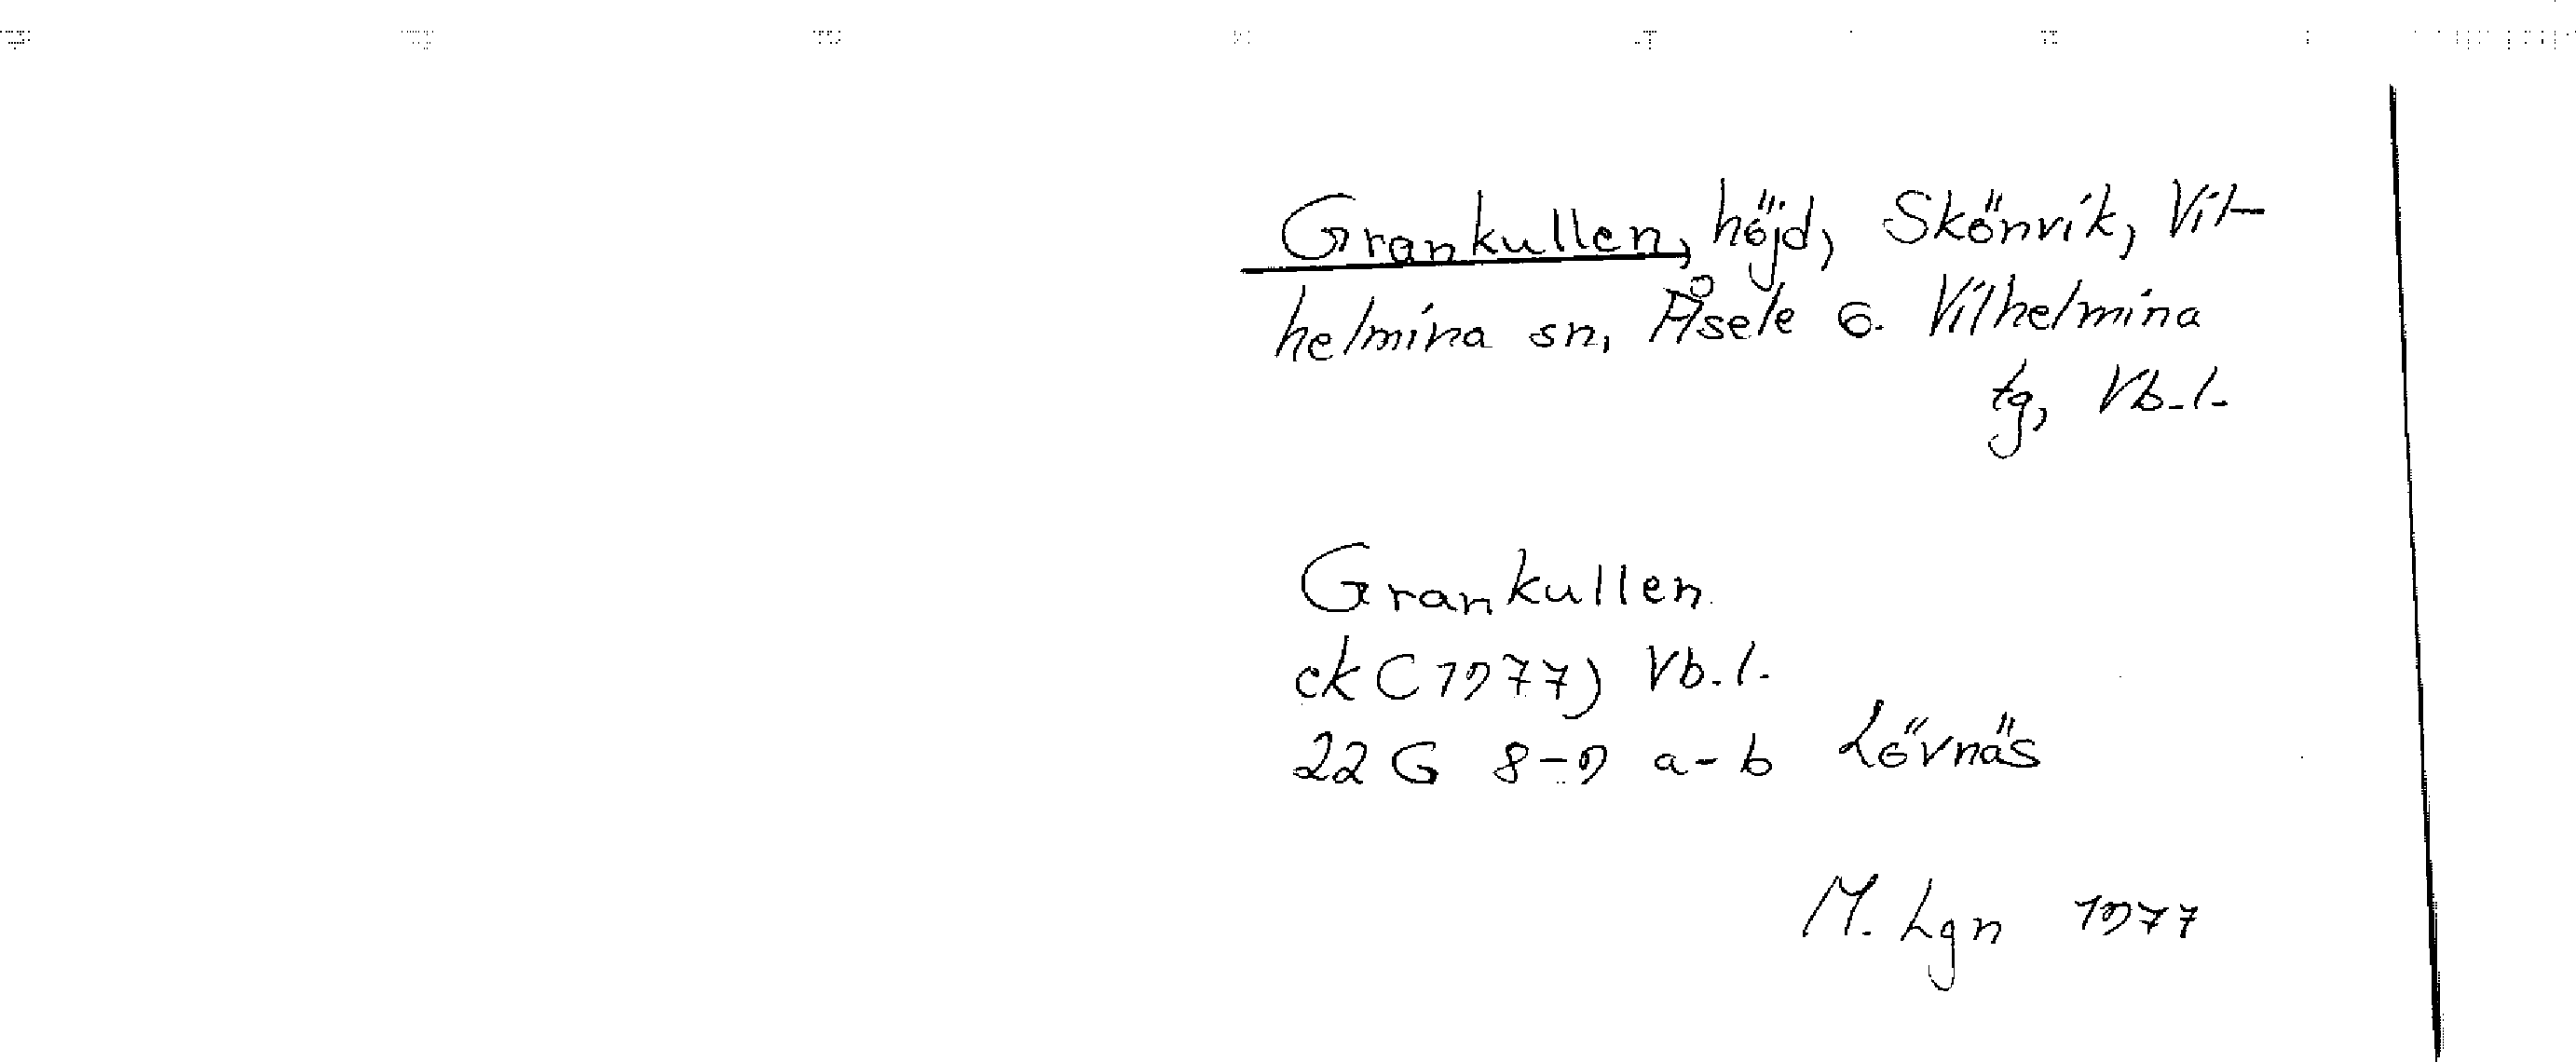 Grankullen, höjd, Skönvik, Vil-
helmina sn, Åsele o. Vilhelmina
tg, Vb. l.
Grankullen
ek (1977) Vb. l.
22 G 8-9 a-b Lövnäs
M. Lgn 1977